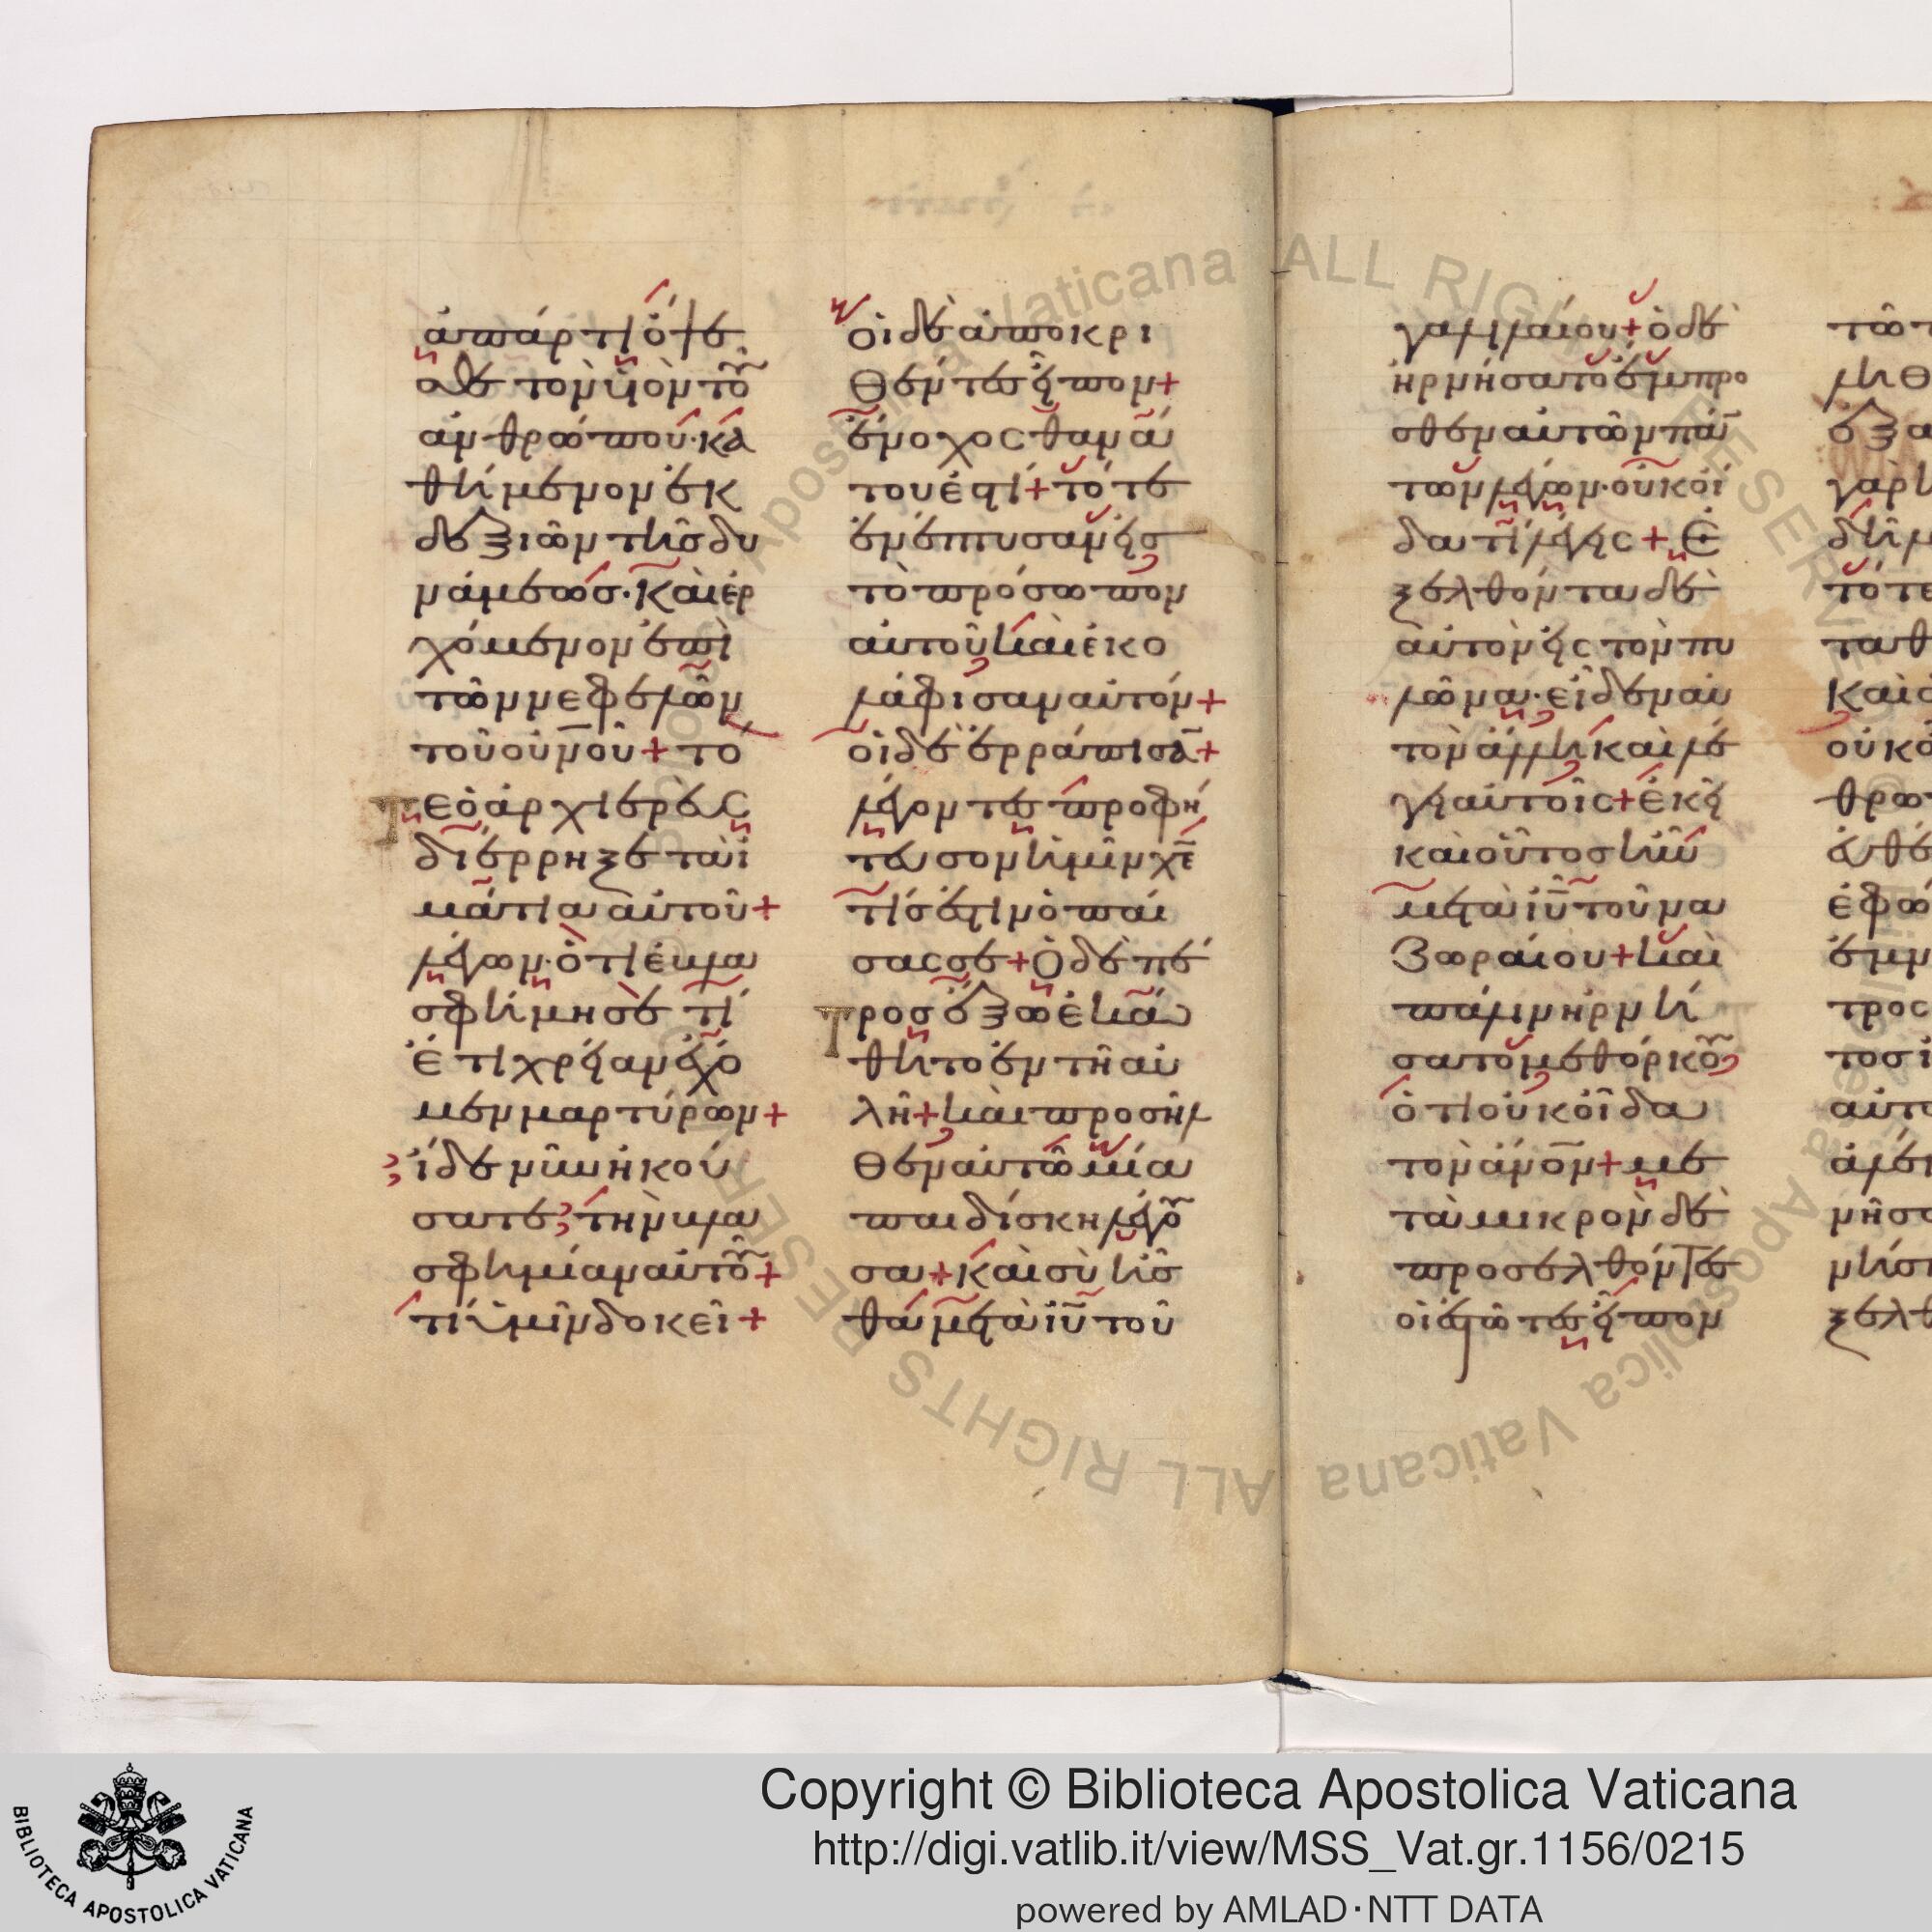 ἀπάρτι ὄψε
σθε τὸν υἱὸν τοῦ
ἀνθρώπου· κα
θήμενον ἐκ
δεξιῶν τῆς δυ
νάμεως· καὶ ἐρ
χόμενον ἐπὶ
τῶν νεφελῶν
τοῦ οὐνοῦ + τό
τε ὁ ἀρχιερεὺς
διέρρηξε τὰ ἱ
μάτια αὐτοῦ +
λέγων· ὅτι ἐβλα
σφήμησε τί
ἔτι χρείαν ἔχο
μεν μαρτύρων +
ἴδε νῦν ἠκού
σατε τὴν βλα
σφημίαν αὐτοῦ +
τί ὑμῖν δοκεῖ +
οἱ δὲ ἀποκρι
θέντες εἶπον +
ἔνοχος θανά
του ἐστί + τότε
ἐνέπτυσαν εἰς
τὸ πρόσωπον
αὐτοῦ καὶ ἐκο
λάφισαν αὐτόν +
οἱ δὲ ἐρράπισαν +
λέγοντες προφή
τευσον ἡμῖν χε
τίς ἐστιν ὁ παί
σας σε + Ὁ δὲ πέ
τρος ἔξω ἐκά
θητο ἐν τῇ αὐ
λῇ + καὶ προσῆλ
θεν αὐτῷ μία
παιδίσκη λέγου
σα + καὶ σὺ ἦς
θα μετὰ ιυ τοῦ
γαλιλαίου + ὁ δὲ
ἠρνήσατο ἔμπρο
σθεν αὐτῶν πάν
των λέγων· οὐκ οἶ
δα τί λέγεις + Ἐ
ξελθόντα δὲ
αὐτὸν εἰς τὸν πυ
λῶνα· εἶδεν αὐ
τὸν ἄλλη καὶ λέ
γει αὐτοῖς + ἐκεῖ
καὶ οὗτος ἦν
μετὰ ιυ τοῦ να
ζωραίου + καὶ
πάλιν ἠρνή
σατο μεθ ὅρκου
ὅτι οὐκ οἶδα
τὸν ἄνον + με
τὰ μικρὸν δὲ
προσελθόντες
οἱ ἑστῶτες εἶπον
Copyright © Biblioteca Apostolica Vaticana
http://digi.vatlib.it/view/MSS_Vat.gr.1156/0215
powered by AMLAD·NTT DATA
BIBLIOTECA APOSTOLICA VATICANA